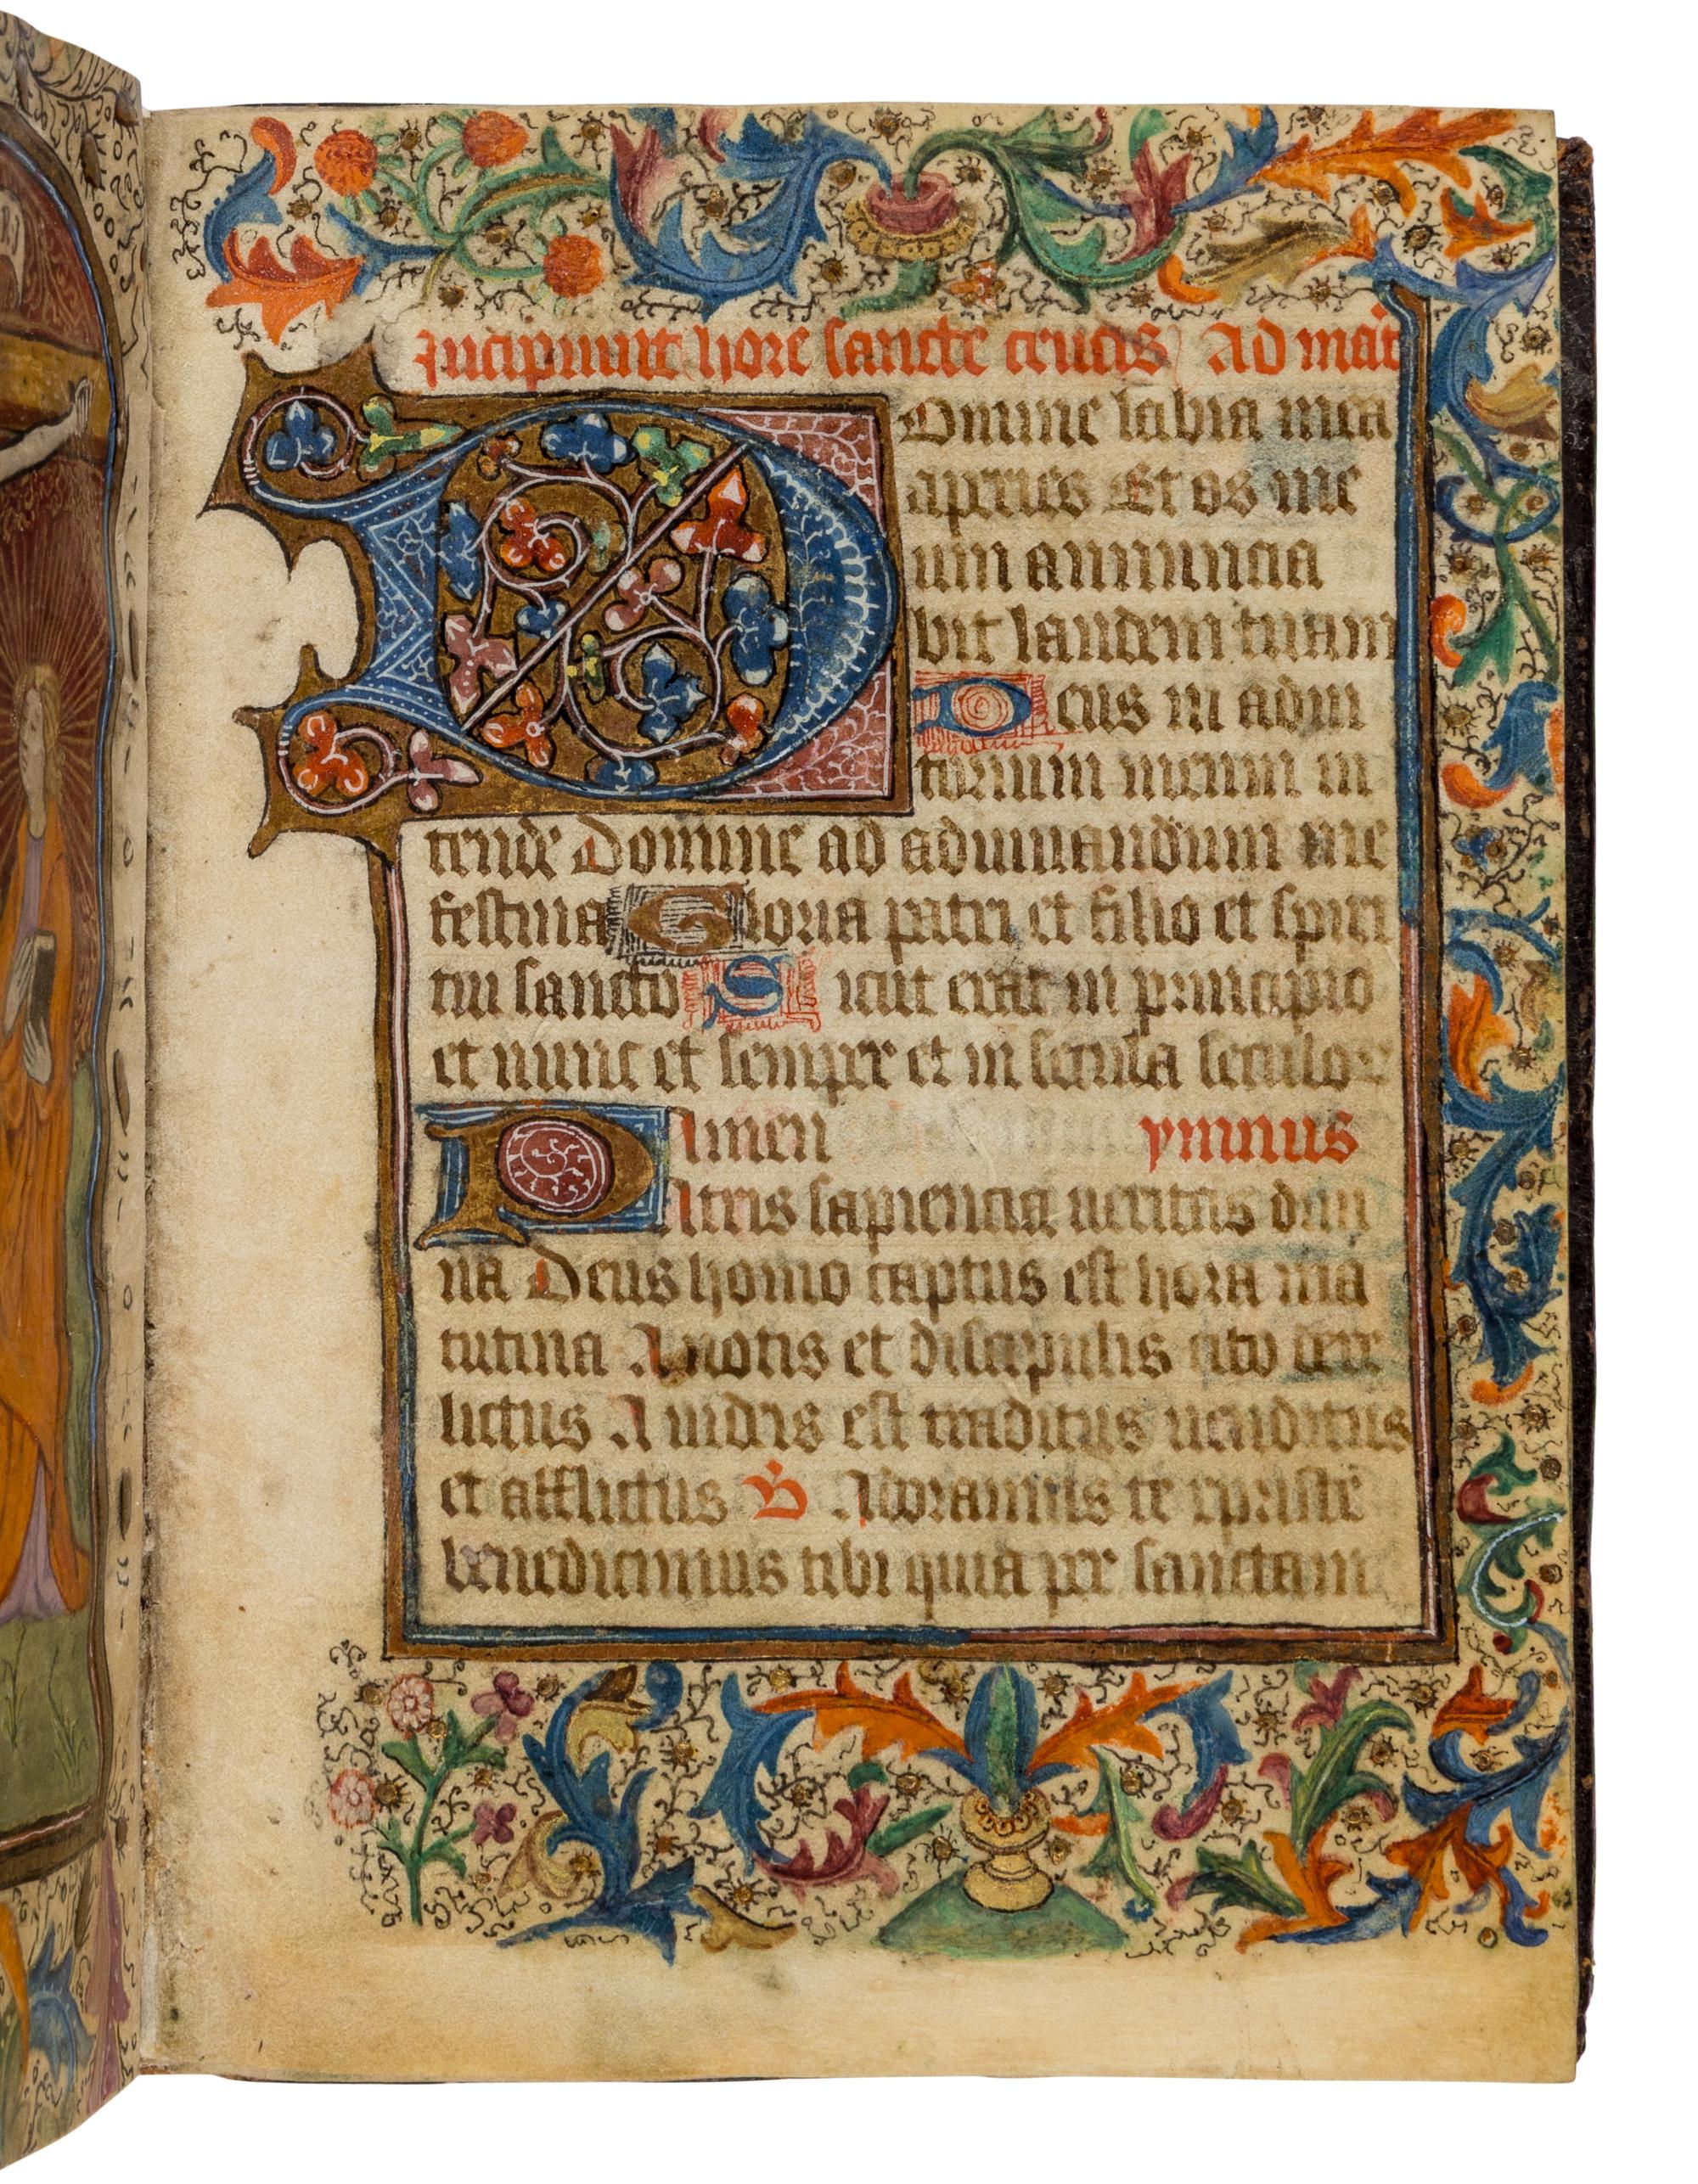 Incipiunt hore sancte crucis Ad mat̅
Domine labia mea
aperies Et os me
um annuncia
bit laudem tuam
Deus in adiu
torium meum in
tende Domine ad adiuuandum me
festina Gloria patri et filio et spiri
tui sancto Sicut erat in principio
et nunc et semper et in secula seculoꝝ
Amen ymnus
Patris sapiencia ueritas diui
na Deus homo captus est hora ma
tutina A notis et discipulis cito dere
lictus A iudeis est traditus uenditus
et afflictus ℣ Adoramus te xpriste
benedicimus tibi quia per sanctam